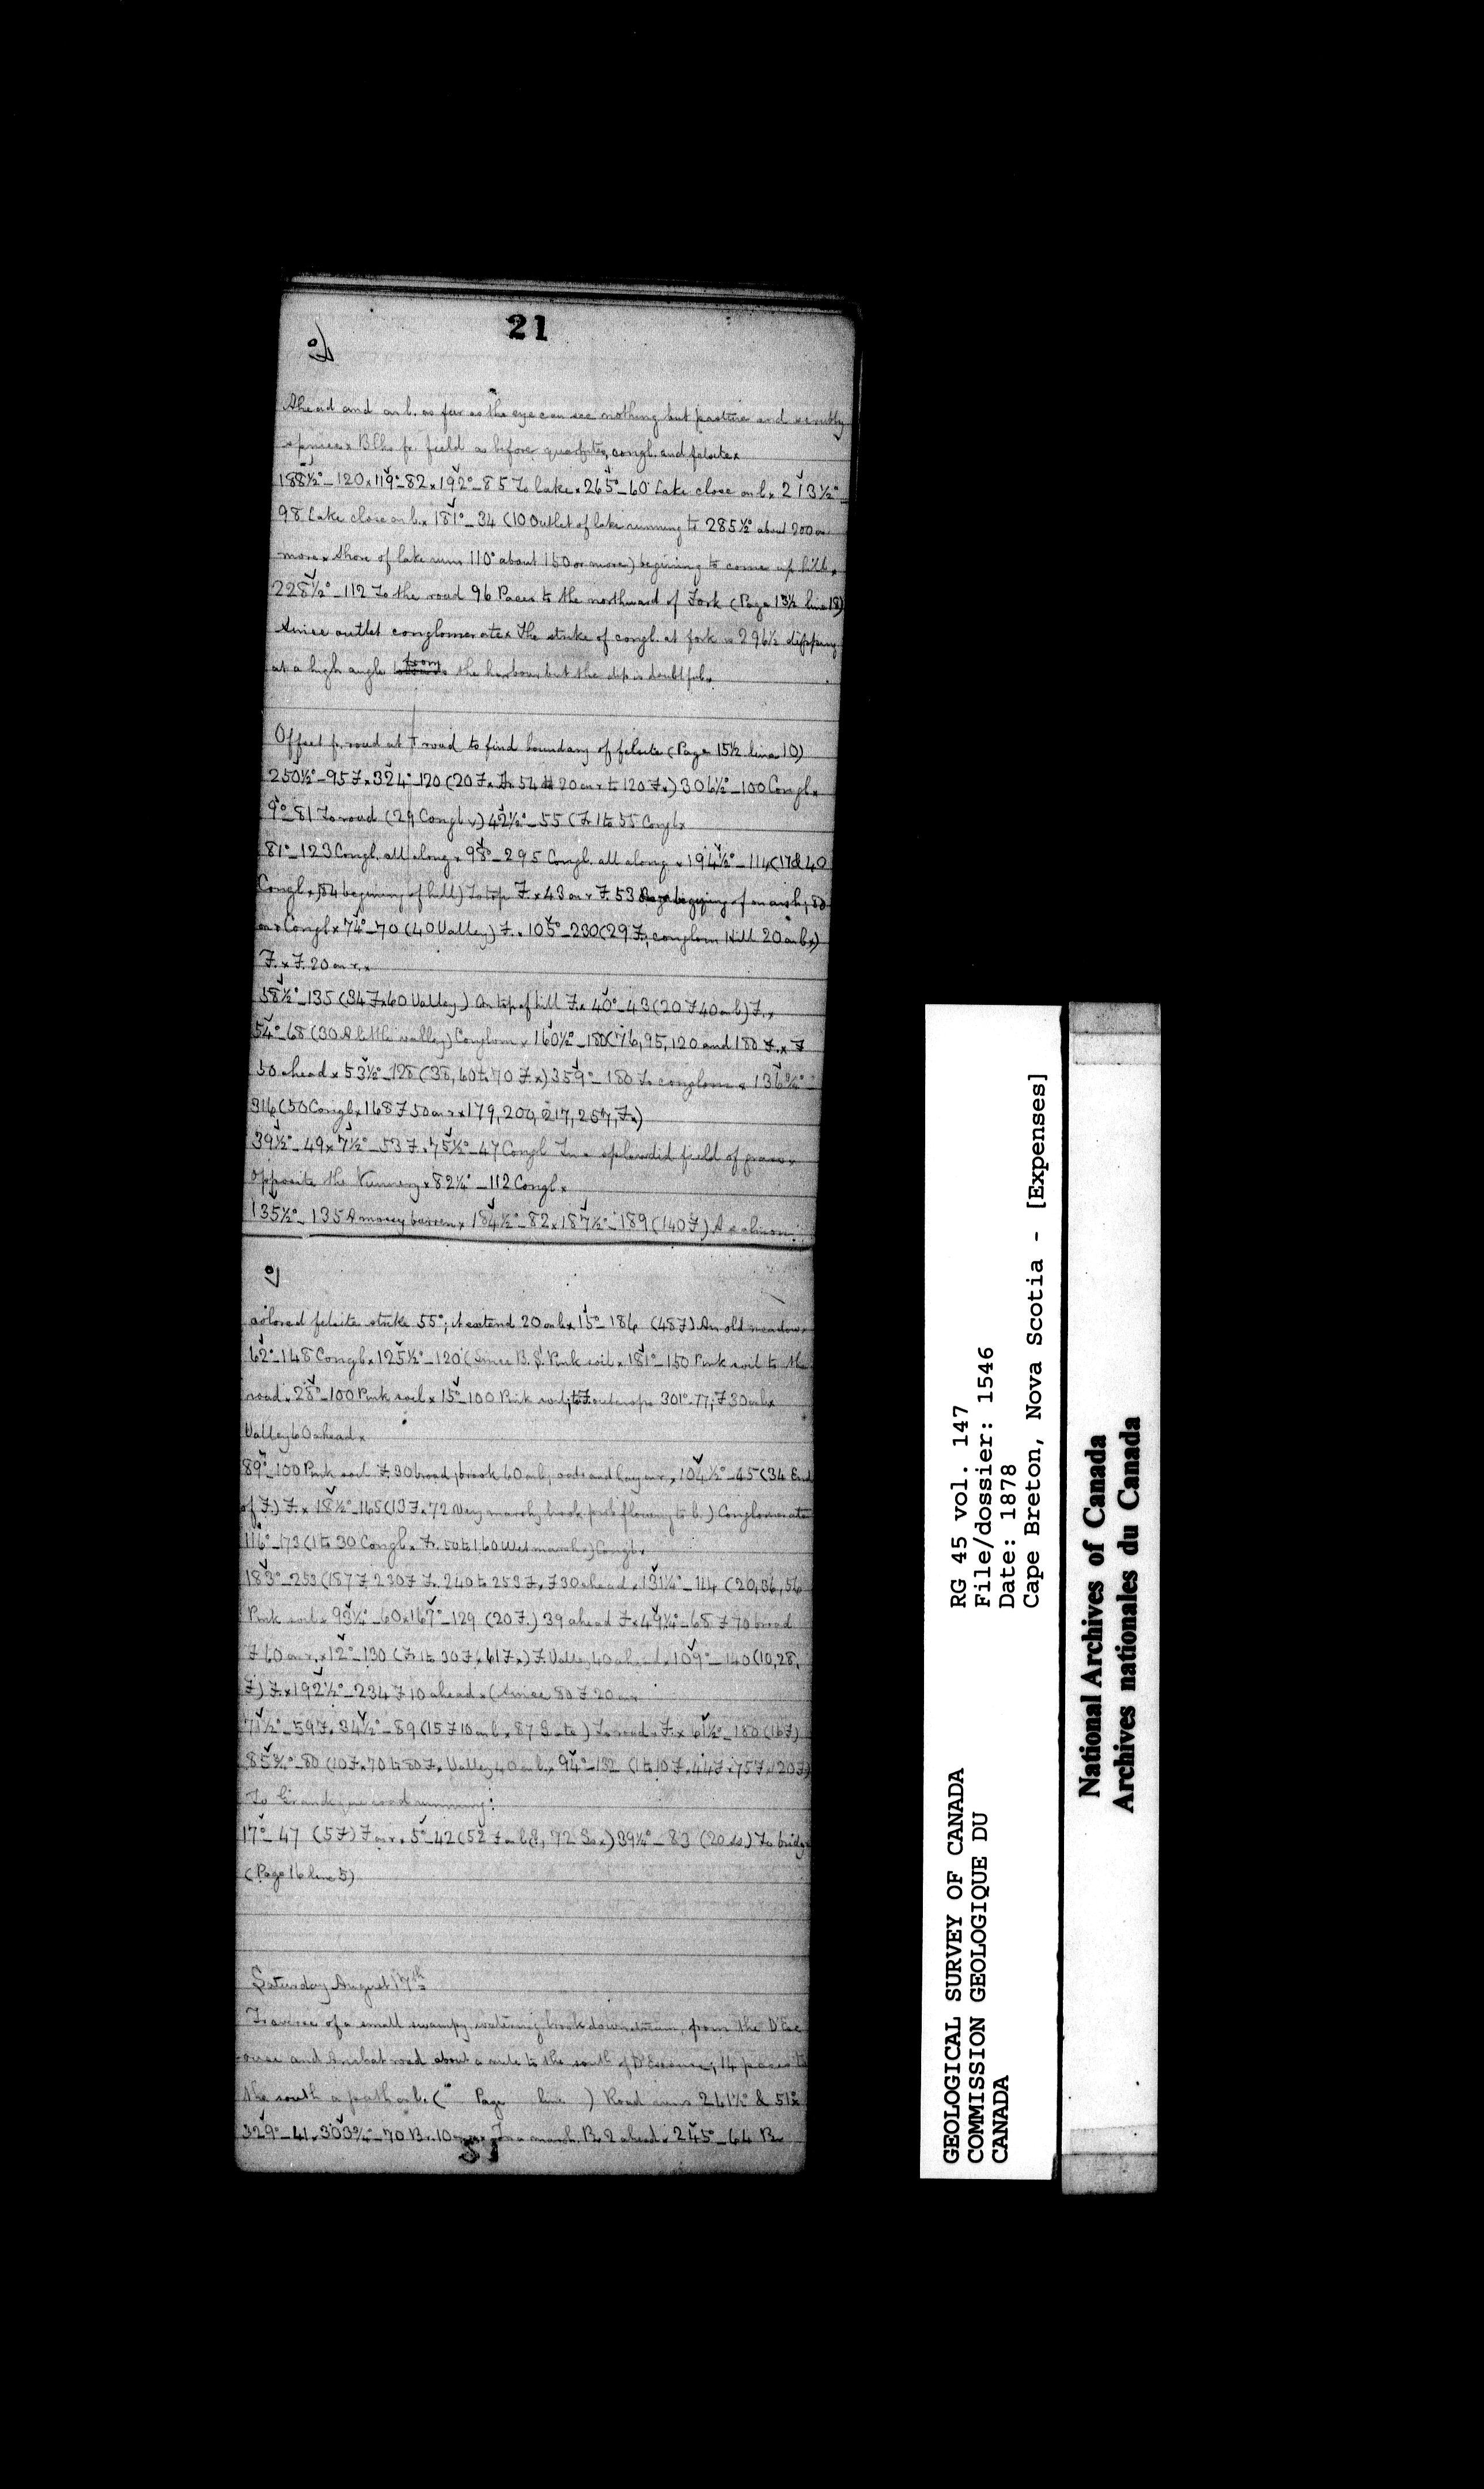 21
Ahead and on l. as far as the eye can see nothing but pasture and scrubby
spruce x Blks fr. field as before quartzites, congl. and felsite x
188½°_120 x 119°_82 x 192°_85 To lake x 265°_60 Lake close on l. x 213½°_
98 Lake close on l. x 181°_34 (10 Outlet of lake running to 285½° about 200 or
more x Shore of lake runs 110° about 150 or more) begining to come up hill x
228½°_112 To the road 96 Paces to the northward of Fork (Page 13½ line 18)
Since outlet conglomerate x The strike of congl. at fork is 296½ dipping
at a high angle from the harbour but the dip is doubtful x
Offset fr. road at T road to find boundary of felsite (Page 15½ line 10)
250½°_95 F. x 324°_120 (20 F. x Fr 54 20 on r to 120 F. x) 306½°_100 Congl x
9°_81 To road (29 Congl x) 42½°_55 (Fr 1 to 55 Congl x
81°_123 Congl. all along x 98°_295 Congl. all along x 194½°_114 (17 & 40
Congl x, 84 begining of hill) To top F. x 43 on r F. 53 begining of marsh; 80
on r Congl x 74°_70 (40 Valley) F. x 105°_230 (29 F; conglom Hill 20 on l x)
F. x F. 20 on r. x
58½°_135 (34 F x 60 Valley) On top of hill F. x 40°_43 (20 F 40 on l) F. x
54°_68 (30 A little valley) Conglom x 160½°_180 (76, 95, 120 and 180 F. x F
50 ahead x 53½°_128 (38, 60 to 70 F. x) 359°_180 To conglom x 136¾°_
316 (50 Congl x 168 F 50 on r x 179, 200, 217, 257, F. x)
39½°_49 x 7½°_53 F. x 75½°_47 Congl In a splendid field of grass x
Opposite the x 82¼°_112 Congl x
135½°_135 A mossy barren x 184½°_82 x 187½°_189 (140 F) A salmon
colored felsite strike 55°; it extend 20 on l x 15°_186 (48 F) An old meadow x
62°_148 Congl x 125½°_120 (Since B.S. Pink soil x 181°_150 Pink soil to the
road x 28°_100 Pink soil x 15°_100 Pink soil; F. outcrops 301°_77; F 30 on l x
Valley 60 ahead x
89°_100 Pink soil F. 30 broad, brook 40 on l, oats and hay on r, 104½°_45 (34 End
of F.) F. x 18½°_165 (13 F. x 72 Very marshy brook flowing to l.) Conglomerate
116°_173 (1 to 30 Congl x Fr. 50 to 160 Wet marsh x) Congl x
183°_253 (187 F 230 F F. 240 to 253 F. x F 30 ahead x 131¼°_114 (20, 36, 56
Pink soil x 93½°_60 x 167°_129 (20 F.) 39 ahead F x 49¼°_68 F 70 broad
F 60 on r. x 12°_130 (Fr 1 to 30 F x 61 F x) F Valley 40 ahead x 109°_140 (10, 28,
F) F. x 192½°_234 F 10 ahead x (Since 80 F 20 on r
71½°_59 F. x 34½°_89 (15 F 10 on l x 87) To road x F. x 61½°_180 (16 F)
85¾°_80 (10 F. x 70 to 80 F. x Valley 40 on l. x 94°_132 (1 to 10 F. x 44 F x 75 F x 120 F)
To Grandique road running:
17°_47 (5 F) F on r. x 5°_42 (52 F on l, 72 x) 39¼°_83 (20 ss) To bridge
(Page 16 line 5)
Saturday August 17th
Traverse of a small swampy brook downstream, from the D'Esc
ousse and Arichat road about a mile to the south of D'Escousse; 14 paces to
the south a path on l. ( Page line ) Road runs 241½° & 51½
329°_41 x 303¾°_70 Br. 10 In a marsh Br. 2 ahead x 245°_64 Br
21
GEOLOGICAL SURVEY OF CANADA
COMMISSION GEOLOGIQUE DU
CANADA
RG 45 vol. 147
File/dossier: 1546
Date: 1878
Cape Breton, Nova Scotia - [Expenses]
National Archives of Canada
Archives nationales du Canada